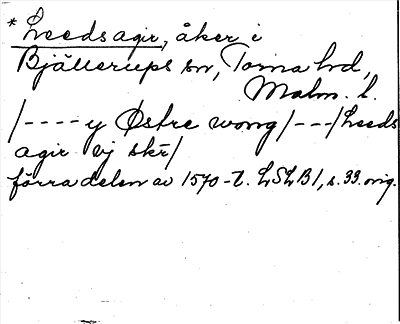 * Leedsagir, åker i
Bjällerups sn, Torna hd,
Malm. l.
/----y Østre wong/---/Leeds
agir vj skr/
förra delen av 1570-t. LSLB1, s. 33. orig.